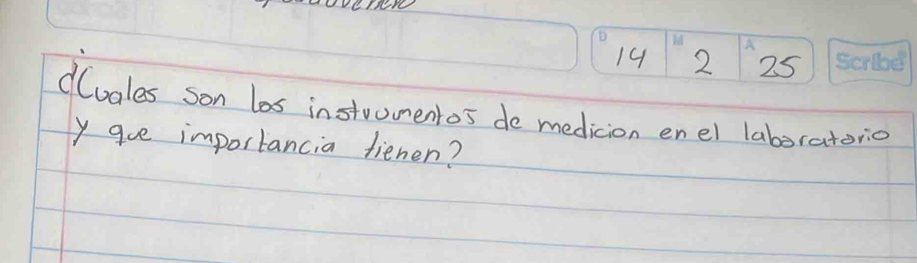 D 14 M 2 A 25 Scribe
¿Cuales son los instrumentos de medicion en el laboratorio
y que importancia tienen?